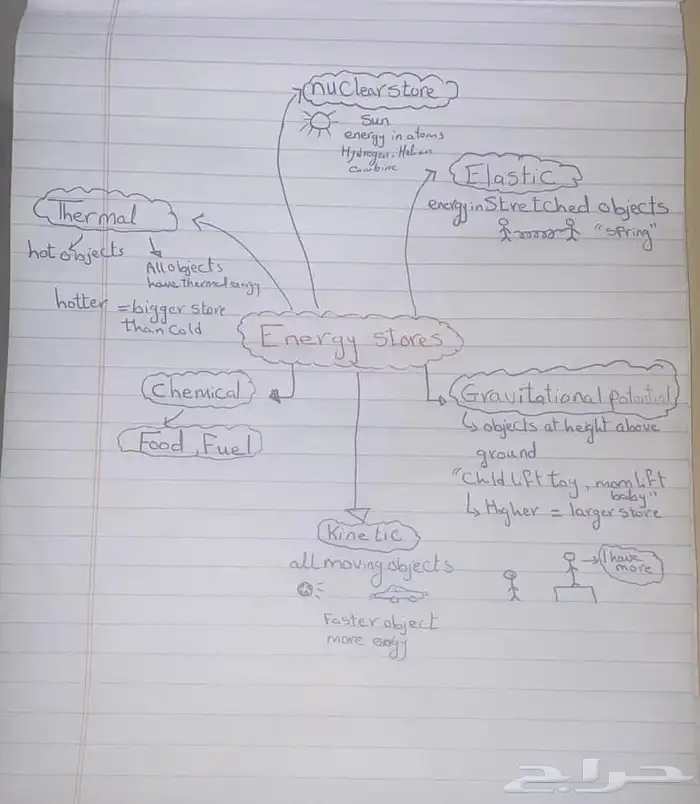 nuclear store
Sun
energy in atoms
Hydrogen - Helium
Combine
Elastic
energy in Stretched objects
"spring"
Thermal
hot objects
All objects
have thermal energy
hotter = bigger store
than cold
Energy stores
Chemical
Food, Fuel
Gravitational potential
objects at height above
ground
"Child lift toy, mom lift
baby"
Higher = larger store
I have
more
Kinetic
all moving objects
Faster object
more
حراج